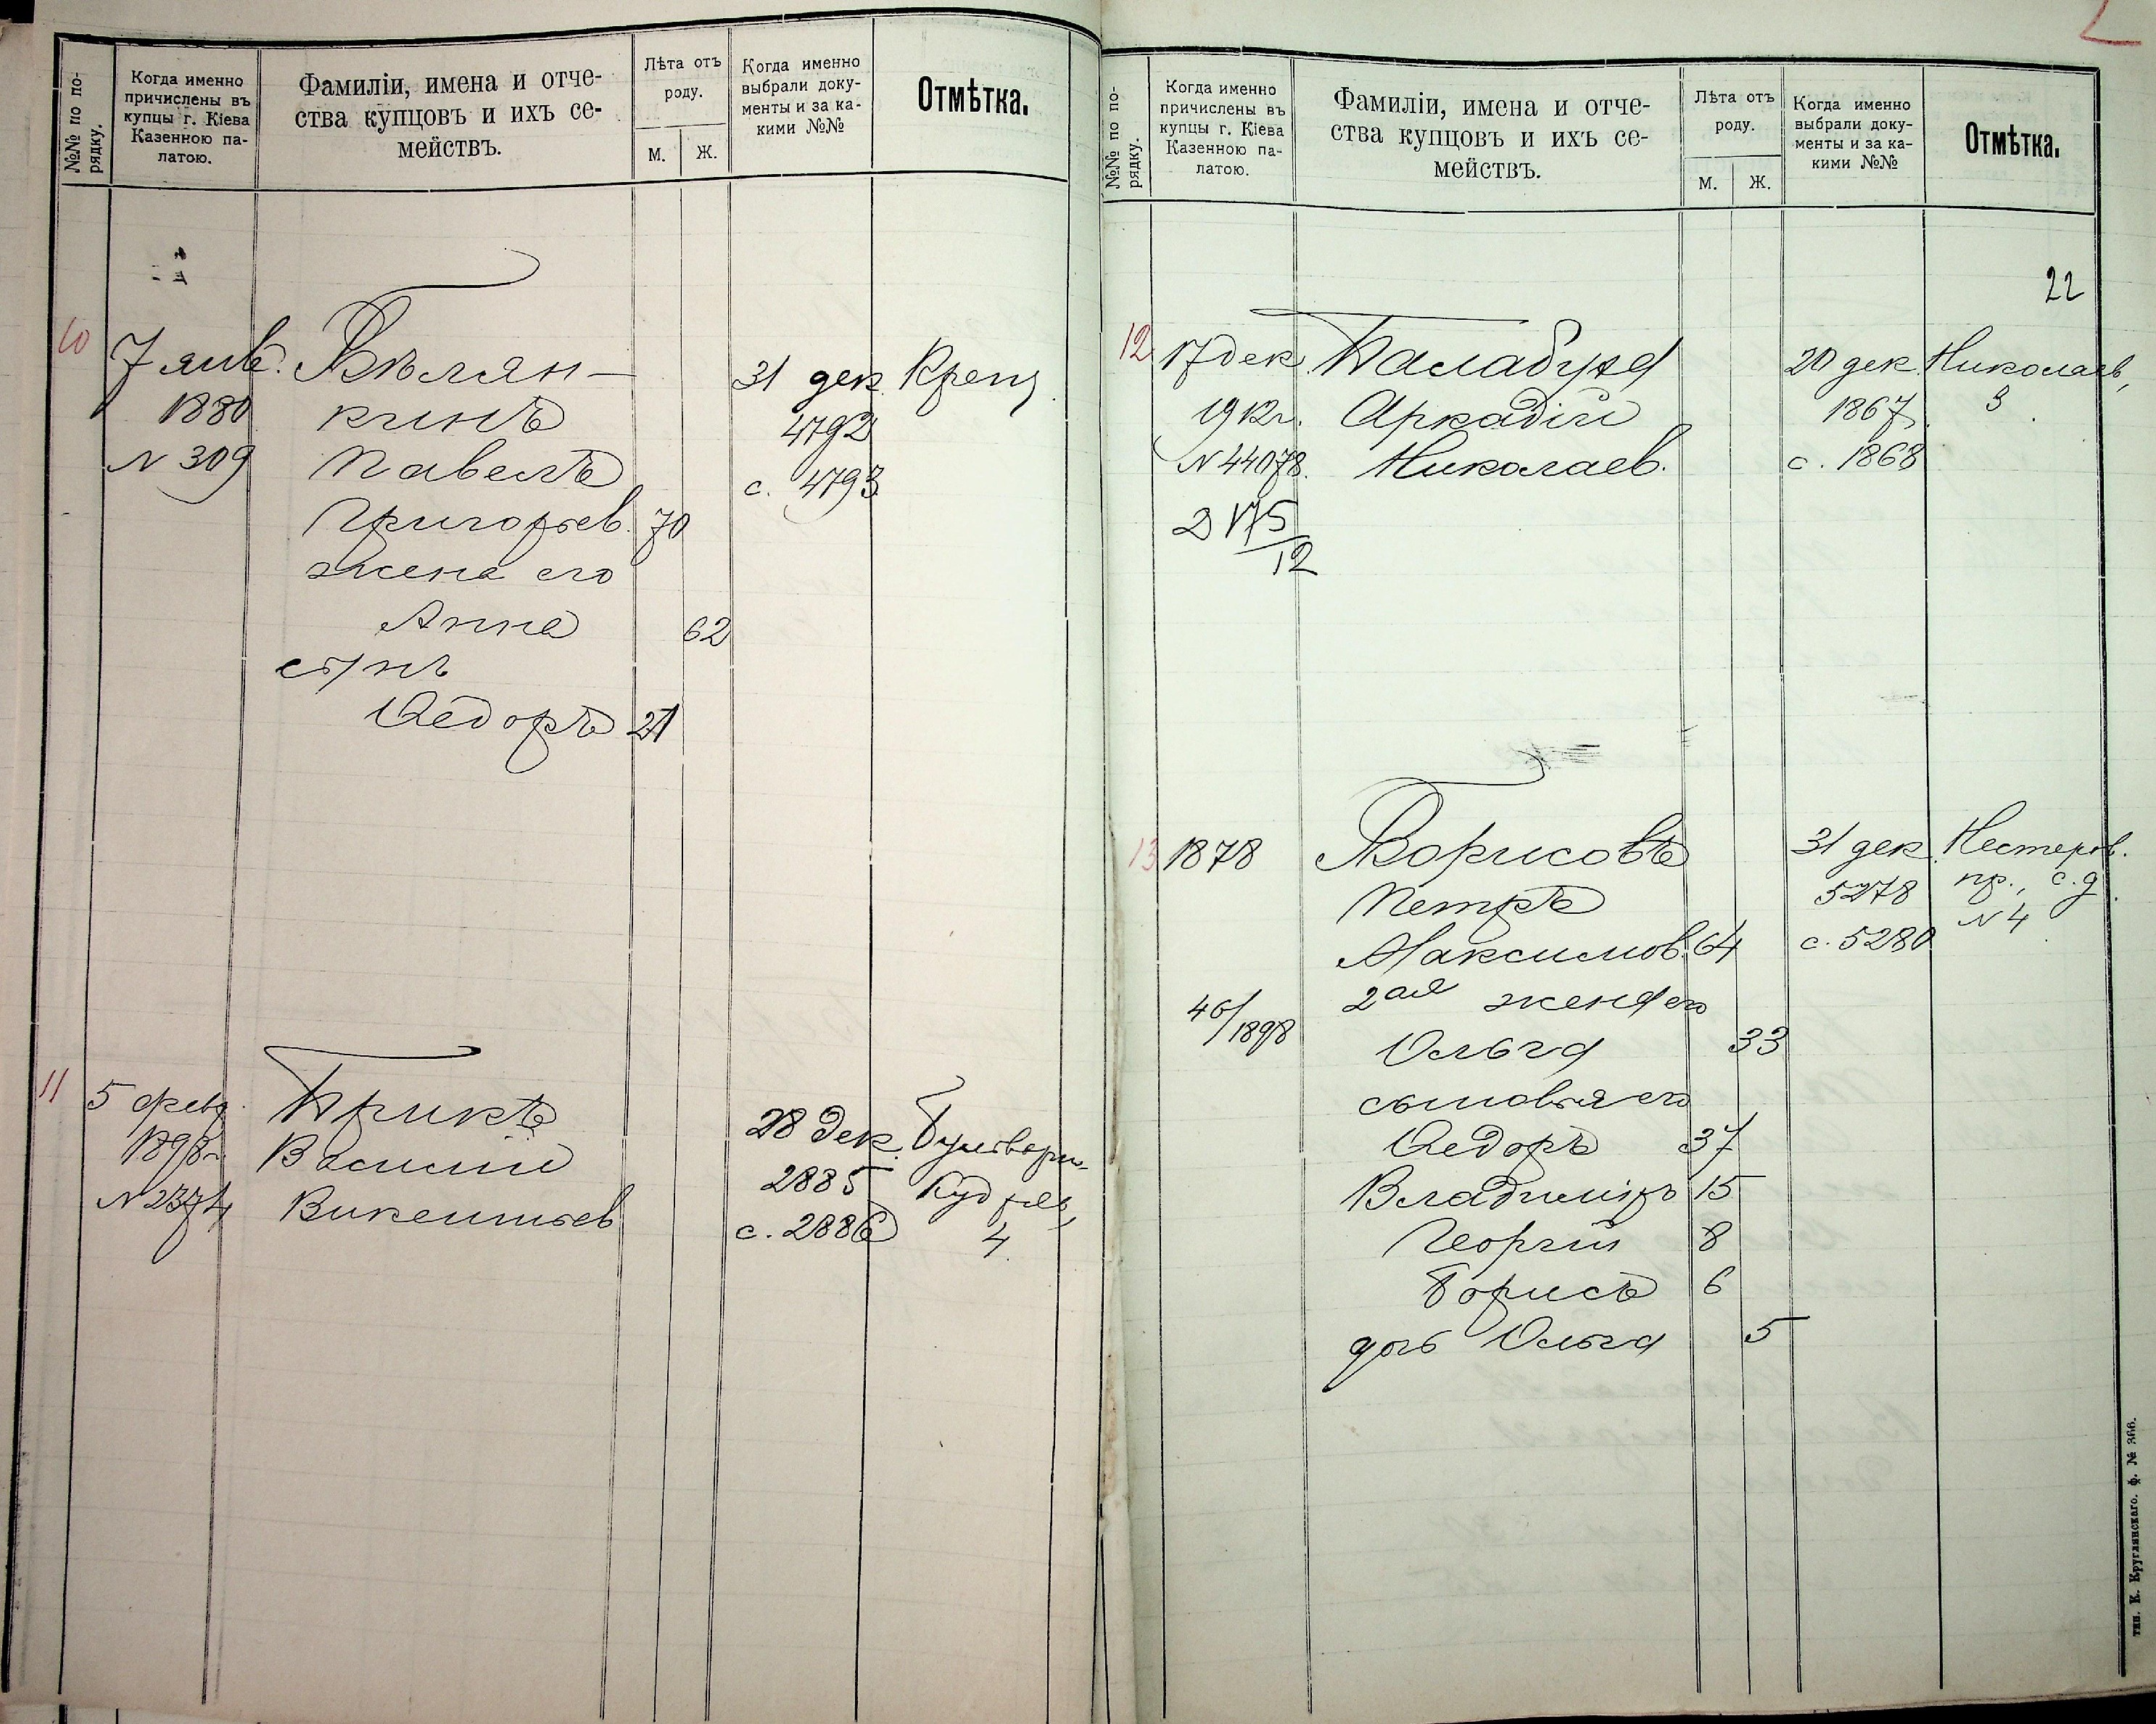 №№ по по-
рядку.
Когда именно
причислены въ
купцы г. Кіева
Казенною па-
латою.
Фамиліи, имена и отче-
ства купцовъ и ихъ се-
мействъ.
Лѣта отъ
роду.
М.
Ж.
Когда именно
выбрали доку-
менты и за ка-
кими №№
Отмѣтка.
10
7 янв.
1880
N 309
Бѣлян-
кинъ
Павелъ
Григорьев. 70
жена его
Анна 62
сынъ
Ѳедоръ 21
31 дек.
4792
с. 4793
Крещ
11
5 февр.
1898 г.
N 2374
Брикъ
Василій
Викентьев
28 дек.
2885
с. 2886
Бульварн.
Кудряв,
4
№№ по по-
рядку.
Когда именно
причислены въ
купцы г. Кіева
Казенною па-
латою.
Фамиліи, имена и отче-
ства купцовъ и ихъ се-
мействъ.
Лѣта отъ
роду.
М.
Ж.
Когда именно
выбрали доку-
менты и за ка-
кими №№
Отмѣтка.
22
12
17 дек
1912 г.
N 44078.
Д 175/12
Балабуха
Аркадій
Николаев.
20 дек.
1867
с. 1868
Николаев,
3
13
1878
Борисовъ
Петръ
Максимов. 64
46/1898
2ая жена его
Ольга 33
сыновья его
Ѳедоръ 37
Владиміръ 15
Георгій 8
Борисъ 6
дочь Ольга 5
31 дек.
5278
с. 5280
Нестеров.
пр., с. д.
N 4
тип. К. Круглянскаго. ф. № 366.